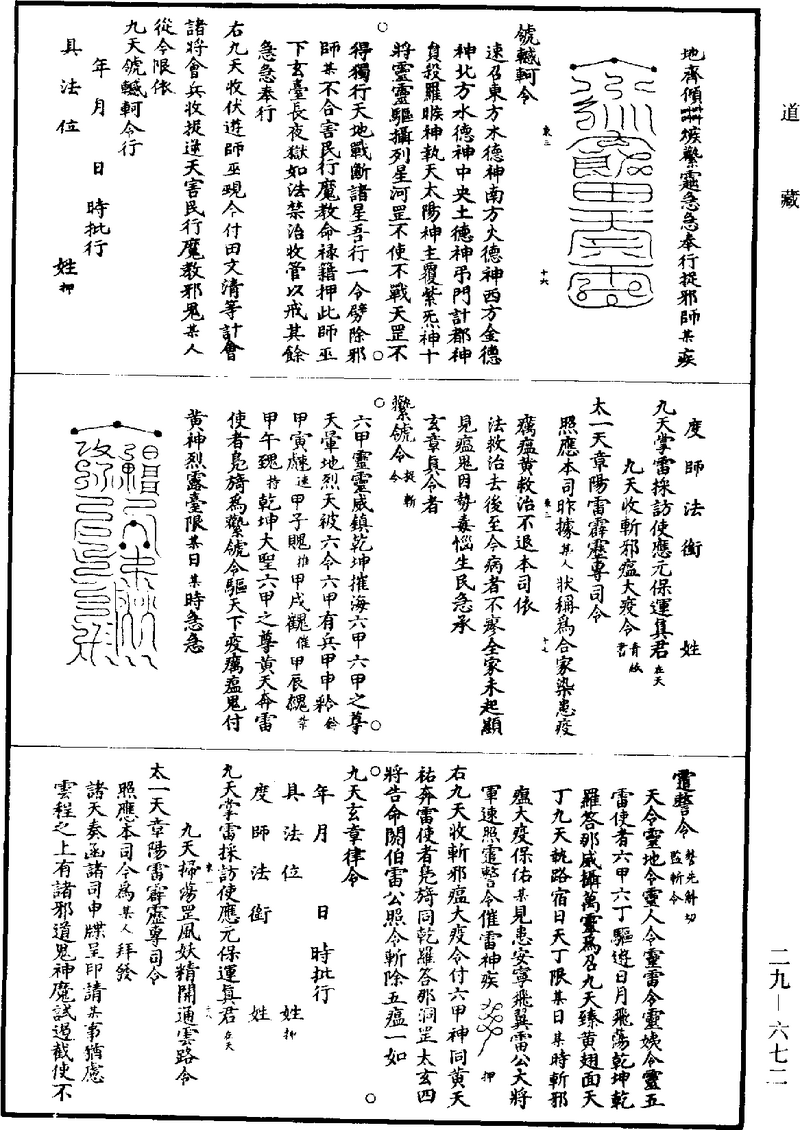 道藏
地齊傾𦶎㷎鱉𩆜急急奉行捉邪師某疾
號轗軻令
速召東方木德神南方火德神西方金德
神北方水德神中央土德神弔門計都神
負殺羅㬋神執天太陽神主覆紫炁神十
將靈靈驅攝列星河罡不使不戰天罡不
得獨行天地戰斷諸星吾行一令劈除邪
師某不合害民行魔教命祿籍押此師巫
下玄臺長夜獄如法禁治收管以戒其餘
急急奉行
右九天收伏遵師巫覡今付田文清等計會
諸將會兵收捉逆天害民行魔教邪鬼某人
從令限依
九天號轗軻令行
年月 日 時批行
具法位 姓押
度師法銜 姓
九天掌雷採訪使應元保運真君在天
九天收斬邪瘟大疫令青紙書
太一天章陽雷霹靂專司令
照應本司昨據某人狀稱爲合家染患疫
癘瘟黄救治不退本司依
法救治去後至今病者不瘳全家未起顯
見瘟鬼因勢毒惱生民急承
玄章真令者
鱉號令捉斬令
六甲靈靈威鎮乾坤摧海六甲六甲之尊
天暈地烈天被六令六甲有兵甲申
甲寅 甲子 甲戌 甲辰
甲午 乾坤大聖六甲之尊黄天奔雷
使者㲋旖爲鱉號令驅天下疫癘瘟鬼付
黄神烈露臺限某日某時急急
霻謷令
監斬令
天令靈地令靈人令靈雷令靈㛢令靈五
雷使者六甲六丁驅遊日月飛蕩乾坤乾
羅答那威攝萬靈爲召九天臻黄翅面天
丁九天𨈭路宿日天丁限某日某時斬邪
瘟大疫保佑某見患安寧飛翼雷公大將
軍速照霻謷令催雷神疾 押
右九天收斬邪瘟大疫令付六甲神同黄天
祐奔雷使者㲋旖同乾羅答那洞罡太玄四
將告命閼伯雷公照令斬除五瘟一如
九天玄章律令
年月 日 時批行
具法位 姓押
度師法銜 姓
九天掌雷採訪使應元保運真君在天
九天掃蕩罡風妖精開通雲路令
太一天章陽雷霹靂專司令
照應本司今爲某人拜發
諸天奏函諸司申牒呈印請某事猶慮
雲程之上有諸邪道鬼神魔試過截使不
二九—六七二